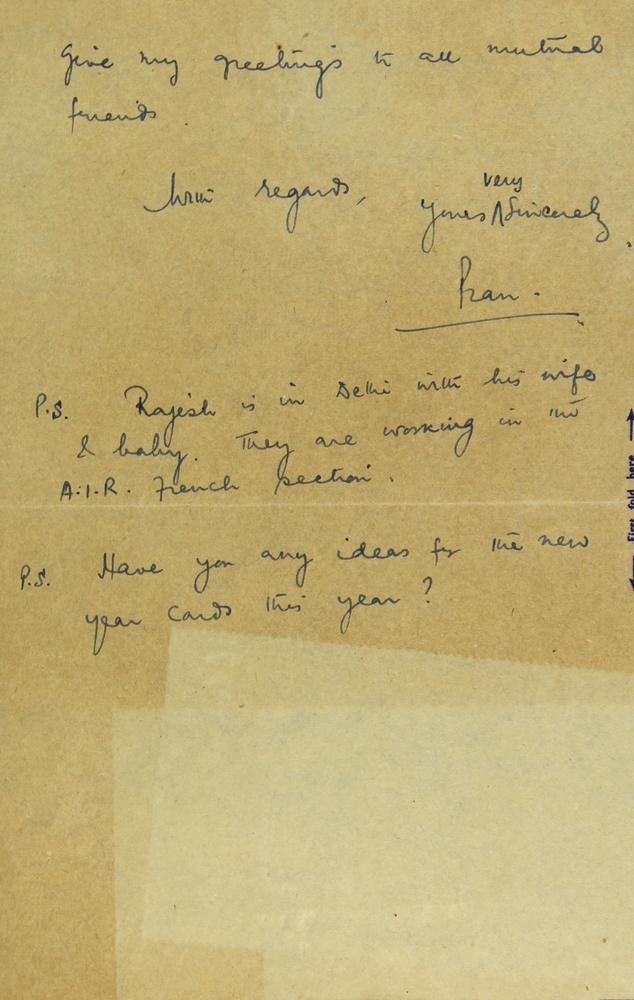 Give my greetings to all mutual
friends.
With regards,
very
Yours ∧ Sincerely,
Pran.
P.S. Rajesh is in Delhi with his wife
& baby. They are working in the
A.I.R. French section.
P.S. Have you any ideas for the new
year cards this year?
First fold here